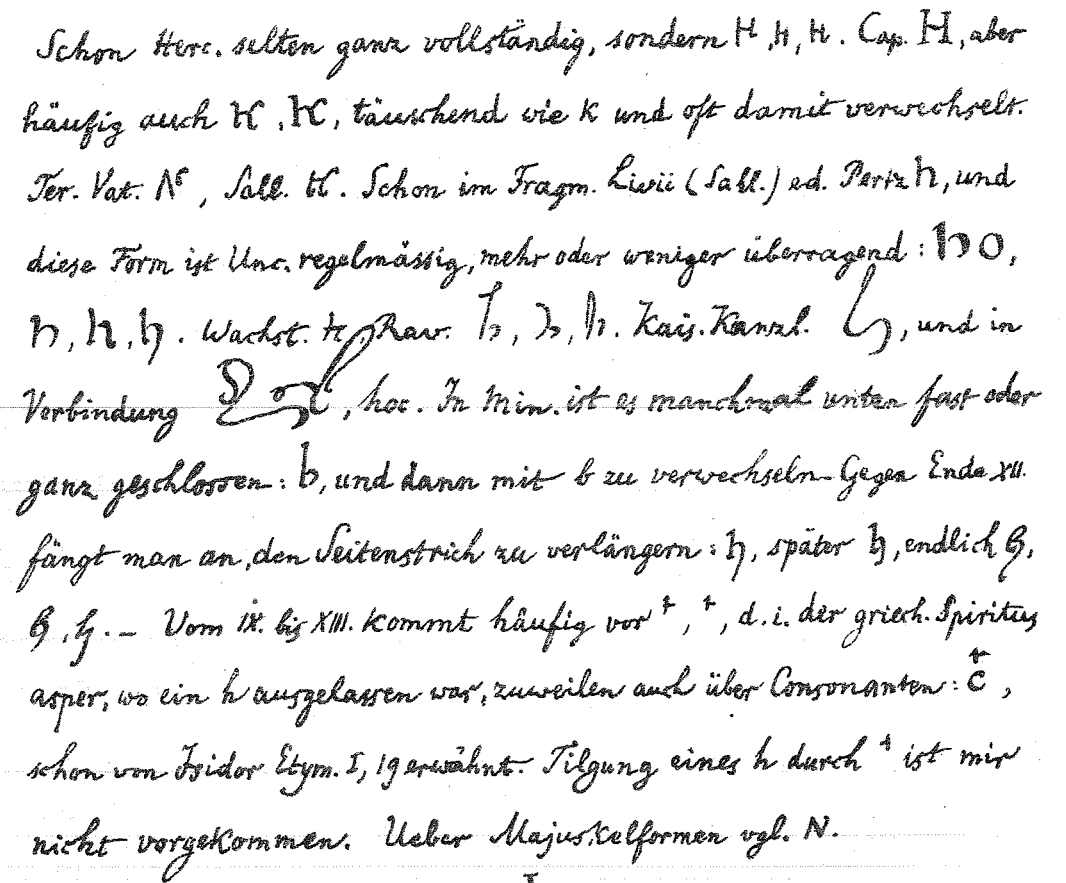 Schon Herc. selten ganz vollständig, sondern H, h, H. Cap. H, aber
häufig auch K, K, täuschend wie K und oft damit verwechselt.
Ter. Vat. , Sall. . Schon im Fragm. Livii (Sall.) ed. Pertz h, und
diese Form ist Unc. regelmässig, mehr oder weniger überragend: ho,
h, h, h. Wachst. Rav. h, h, h. Kais. Kanzl. h, und in
Verbindung , hoc. In Min. ist es manchmal unten fast oder
ganz geschlossen: b, und dann mit b zu verwechseln. Gegen Ende XII.
fängt man an, den Seitenstrich zu verlängern: h, später h, endlich h,
h, h. – Vom IX. bis XIII. kommt häufig vor , , d. i. der griech. Spiritus
asper, wo ein h ausgelassen war, zuweilen auch über Consonanten: c,
schon von Isidor Etym. I, 19 erwähnt. Tilgung eines h durch ist mir
nicht vorgekommen. Ueber Majuskelformen vgl. N.